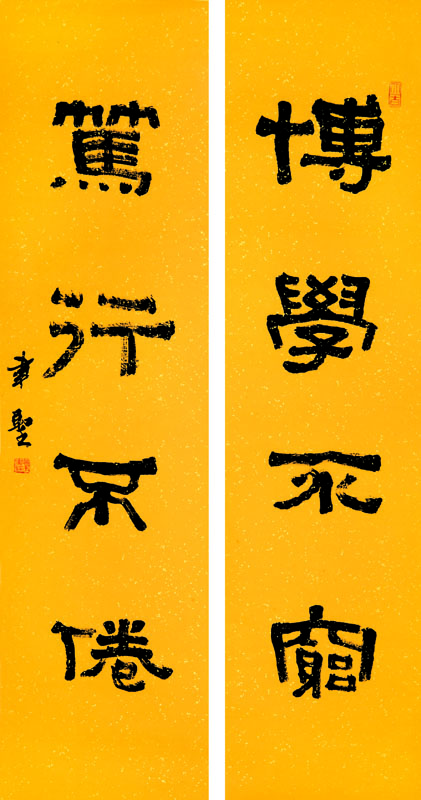 博學不窮
篤行不倦
聖